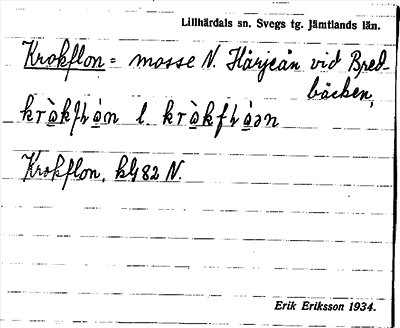 Lillhärdals sn. Svegs tg. Jämtlands län.
Krokflon = mosse N. Härjeån vid Bred
bäcken,
kràkfɫȧn l. kràkfɫȧən
Krokflon, kbl 82 N.
Erik Eriksson 1934.